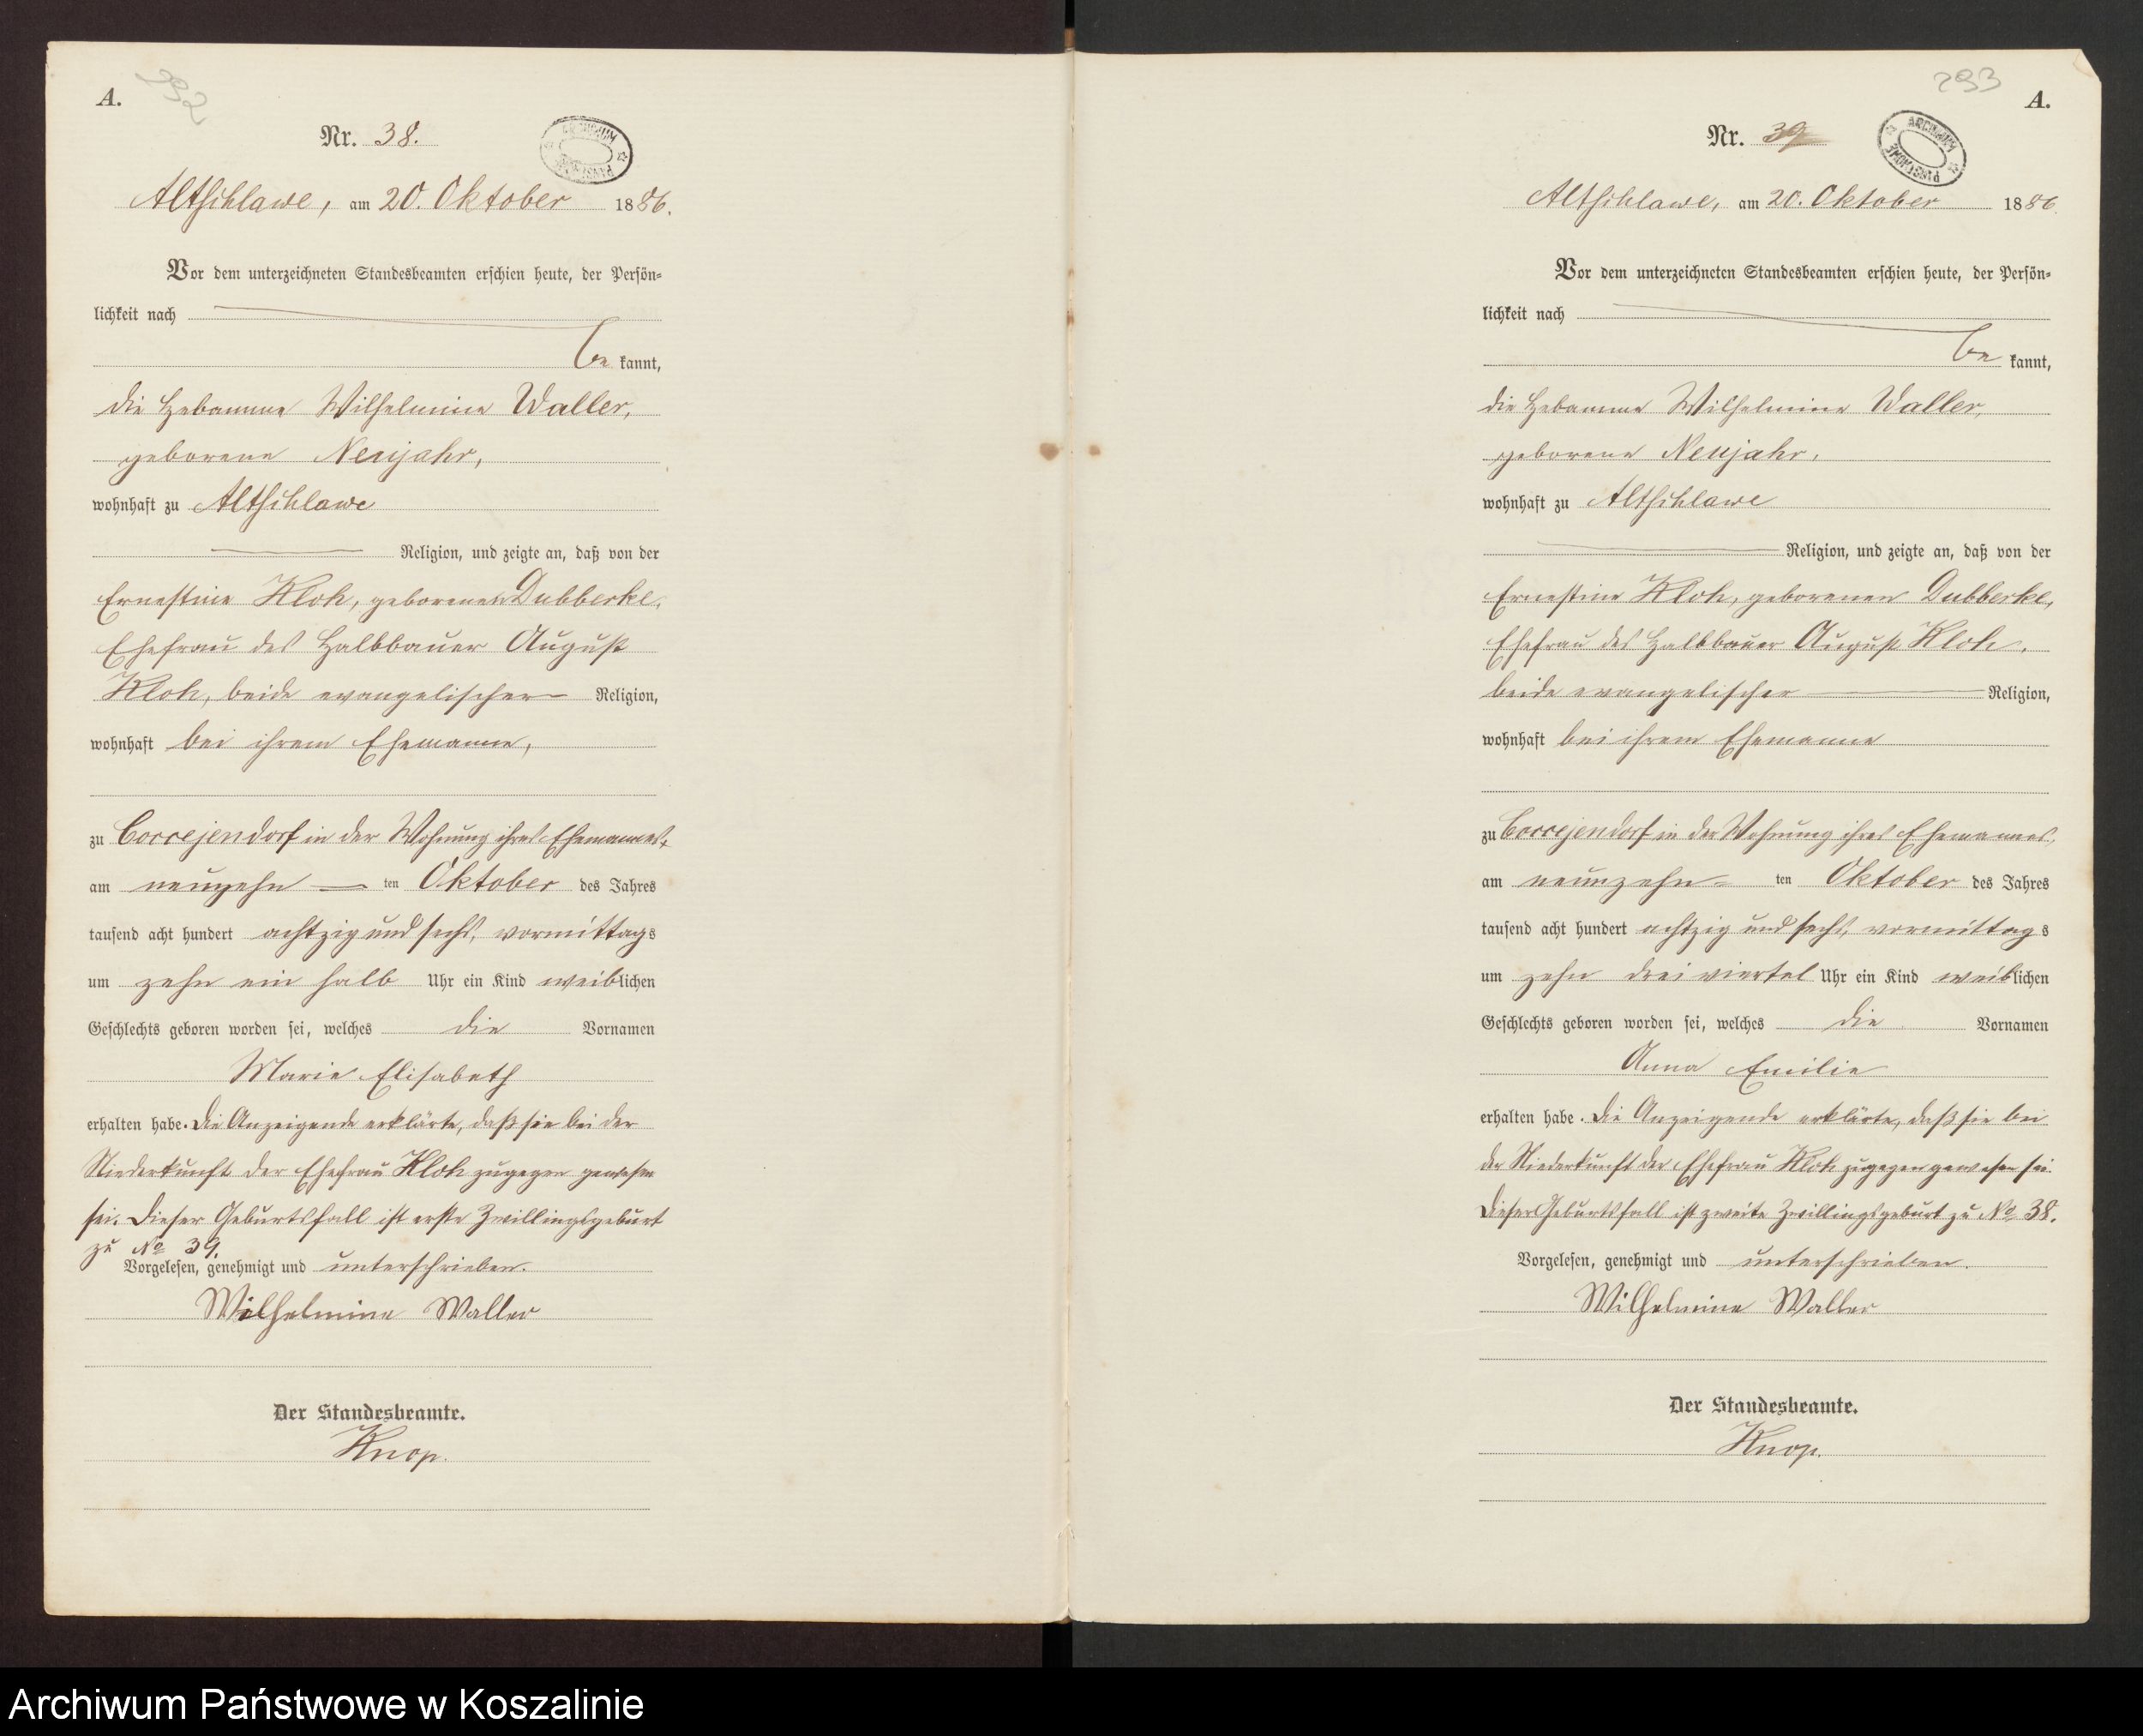 A.
292
Nr. 38.
Altschlawe, am 20. Oktober 1886.
Vor dem unterzeichneten Standesbeamten erschien heute, der Persön-
lichkeit nach
be kannt,
die Hebamme Wilhelmine Waller,
geborene Neujahr,
wohnhaft zu Altschlawe
Religion, und zeigte an, daß von der
Ernestine Kloh, geborenen Dubberke,
Ehefrau des Halbbauer August
Kloh, beide evangelischer Religion,
wohnhaft bei ihrem Ehemanne,
zu Coccejendorf in der Wohnung ihres Ehemannes,
am neunzehn ten Oktober des Jahres
tausend acht hundert achtzig und sechs, vormittags
um zehn ein halb Uhr ein Kind weiblichen
Geschlechts geboren worden sei, welches die Vornamen
Marie Elisabeth
erhalten habe. Die Anzeigende erklärte, daß sie bei der
Niederkunft der Ehefrau Kloh zugegen gewesen
sei. Dieser Geburtsfall ist erste Zwillingsgeburt
zu No 39.
Vorgelesen, genehmigt und unterschrieben.
Wilhelmine Waller
Der Standesbeamte.
Knop.
293
A.
Nr. 39
ARCHIWUM PAŃSTWOWE
Altschlawe, am 20. Oktober 1886.
Vor dem unterzeichneten Standesbeamten erschien heute, der Persön-
lichkeit nach
be kannt,
die Hebamme Wilhelmine Waller,
geborene Neujahr,
wohnhaft zu Altschlawe
Religion, und zeigte an, daß von der
Ernestine Kloh, geborenen Dubberke,
Ehefrau des Halbbauer August Kloh,
beide evangelischer Religion,
wohnhaft bei ihrem Ehemanne
zu Coccejendorf in der Wohnung ihres Ehemannes,
am neunzehn ten Oktober des Jahres
tausend acht hundert achtzig und sechs, vormittags
um zehn drei viertel Uhr ein Kind weiblichen
Geschlechts geboren worden sei, welches die Vornamen
Anna Emilie
erhalten habe. Die Anzeigende erklärte, daß sie bei
der Niederkunft der Ehefrau Kloh zugegen gewesen sei.
Dieser Geburtsfall ist zweite Zwillingsgeburt zu No 38.
Vorgelesen, genehmigt und unterschrieben.
Wilhelmine Waller
Der Standesbeamte.
Knop.
Archiwum Państwowe w Koszalinie